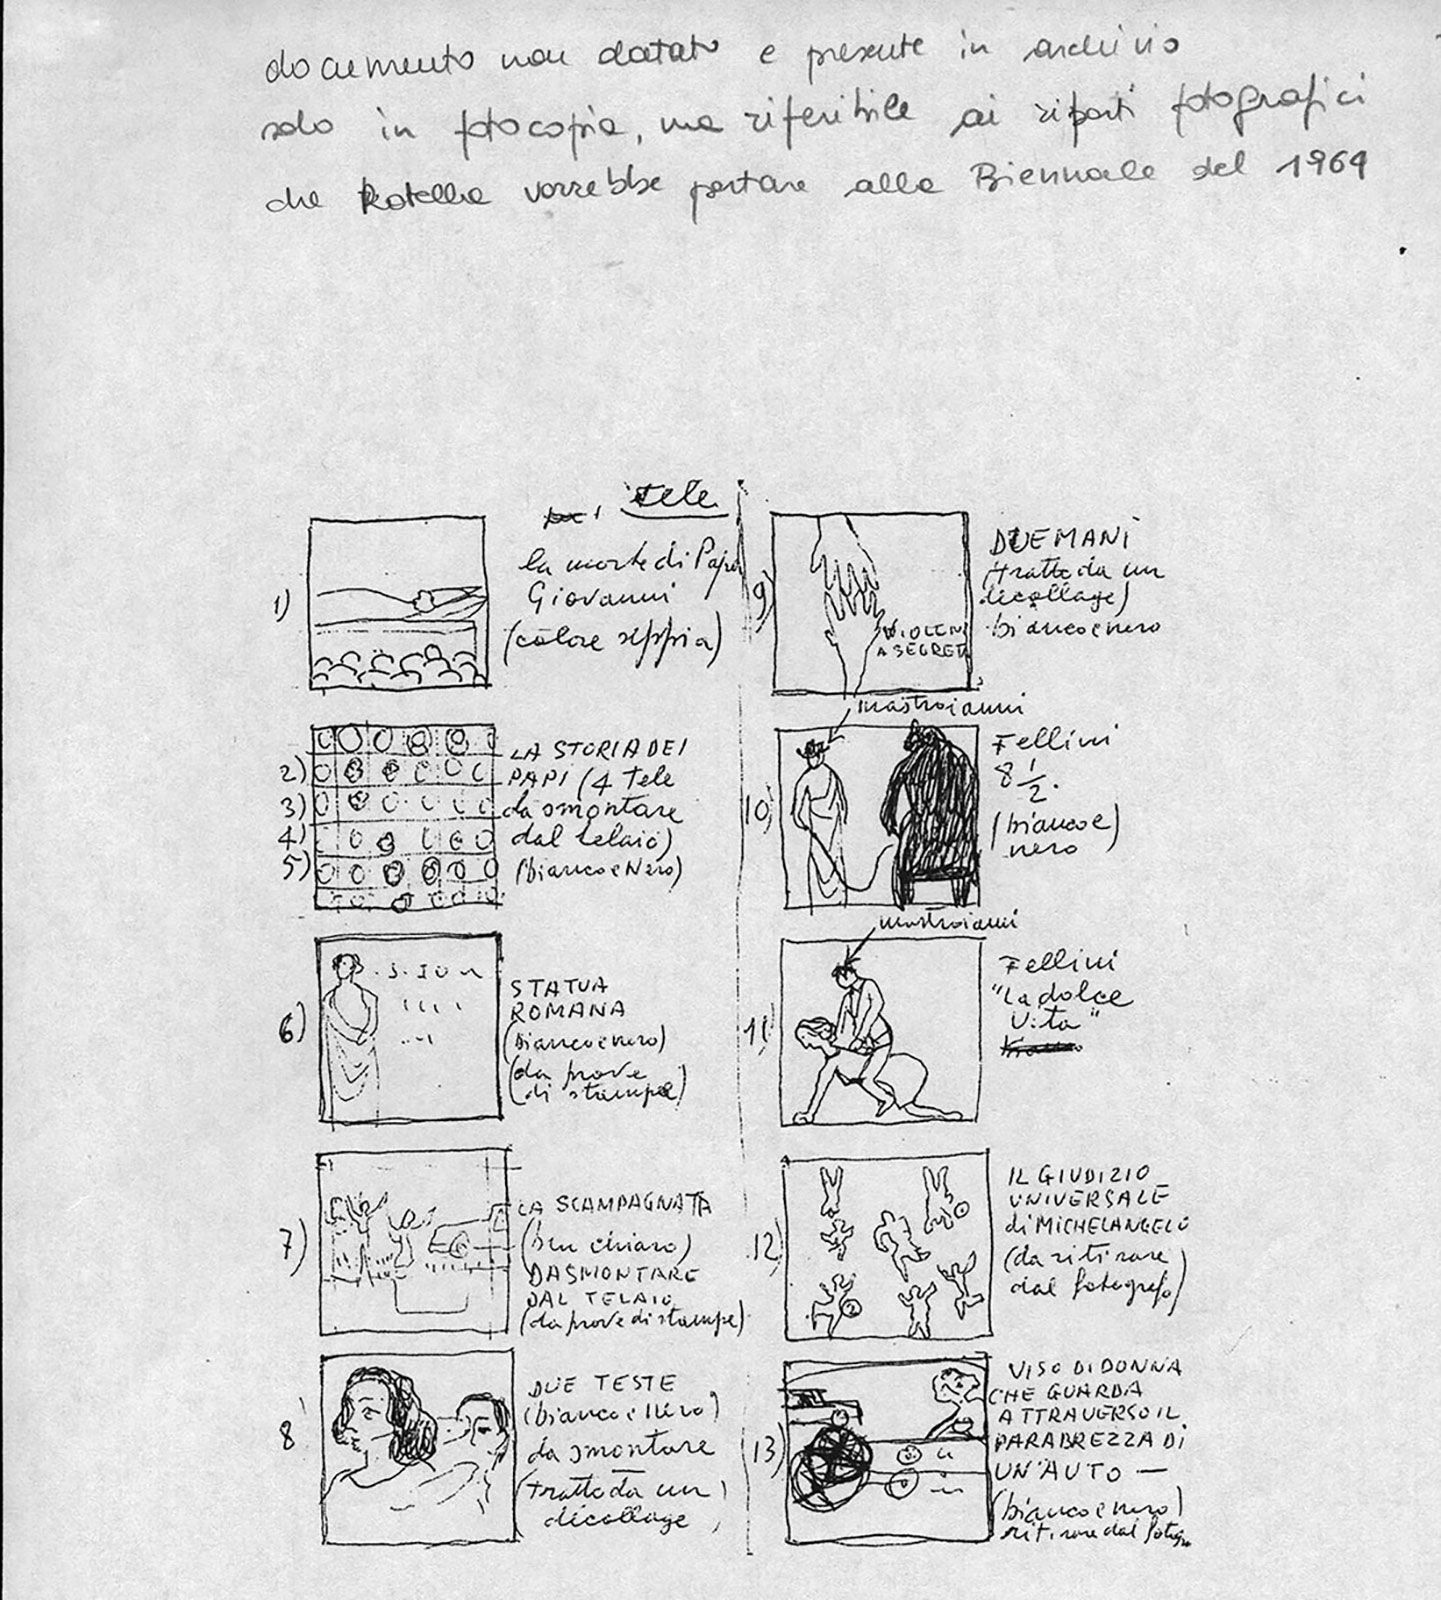 documento non datato e presente in archivio
solo in fotocopia, ma riferibile ai riporti fotografici
che Rotella vorrebbe portare alla Biennale del 1964
tele
1)
la morte di Papa
Giovanni
(colore seppia)
2)
3)
4)
5)
LA STORIA DEI
PAPI (4 tele
da smontare
dal telaio)
(bianco e Nero)
6)
STATUA
ROMANA
(bianco e nero)
(da prove
di stampa)
7)
LA SCAMPAGNATA
(ben chiaro)
DA SMONTARE
DAL TELAIO
(da prove di stampe)
8
DUE TESTE
(bianco e Nero)
da smontare
(tratte da un
décollage)
9)
VIOLENZ
A SEGRETA
DUE MANI
(tratte da un
décollage)
bianco e nero
mastroianni
10)
Fellini
8 1/2.
(bianco e
nero)
mastroianni
11)
Fellini
"La dolce
Vita"
12)
IL GIUDIZIO
UNIVERSALE
di MICHELANGELO
(da ritirare
dal fotografo)
13)
VISO DI DONNA
CHE GUARDA
ATTRAVERSO IL
PARABREZZA DI
UN'AUTO —
(bianco e nero)
ritirare dal fotogr